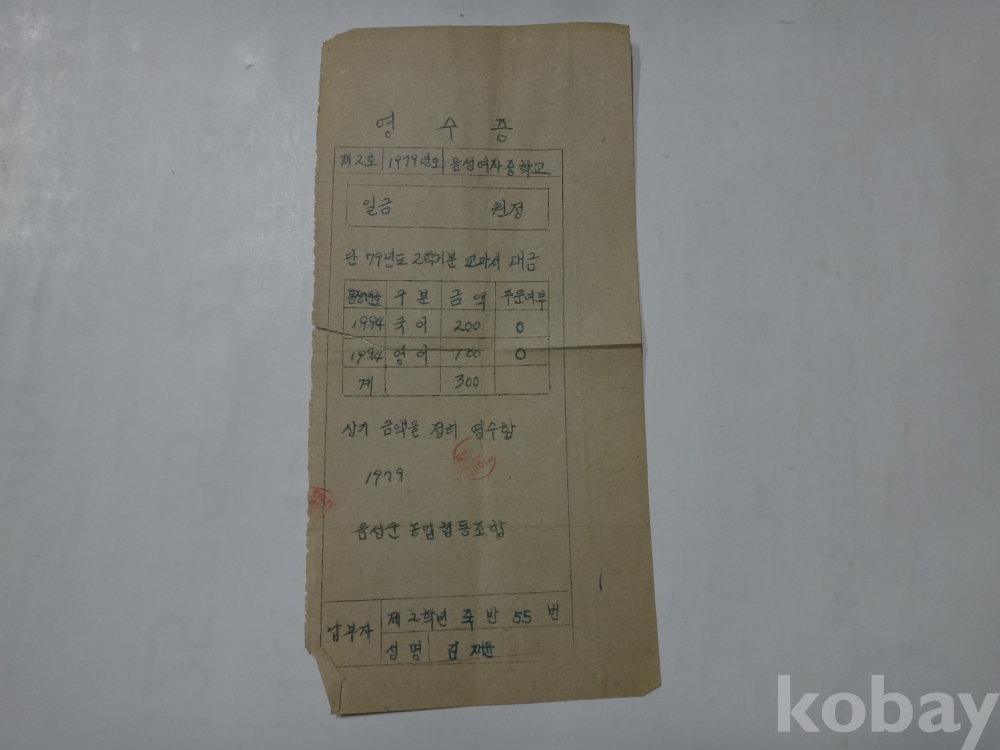 영 수 증
제2호 1979년도 음성여자중학교
일금 원정
단 79년도 2학기분 교과서 대금
통장번호 구분 금액 주문여부
1994 국어 200 0
1994 영어 100 0
계 300
상기 금액을 정히 영수함
1979. . .
음성군 농업협동조합
납부자 제2학년 죽반 55번
성명 김재윤
kobay